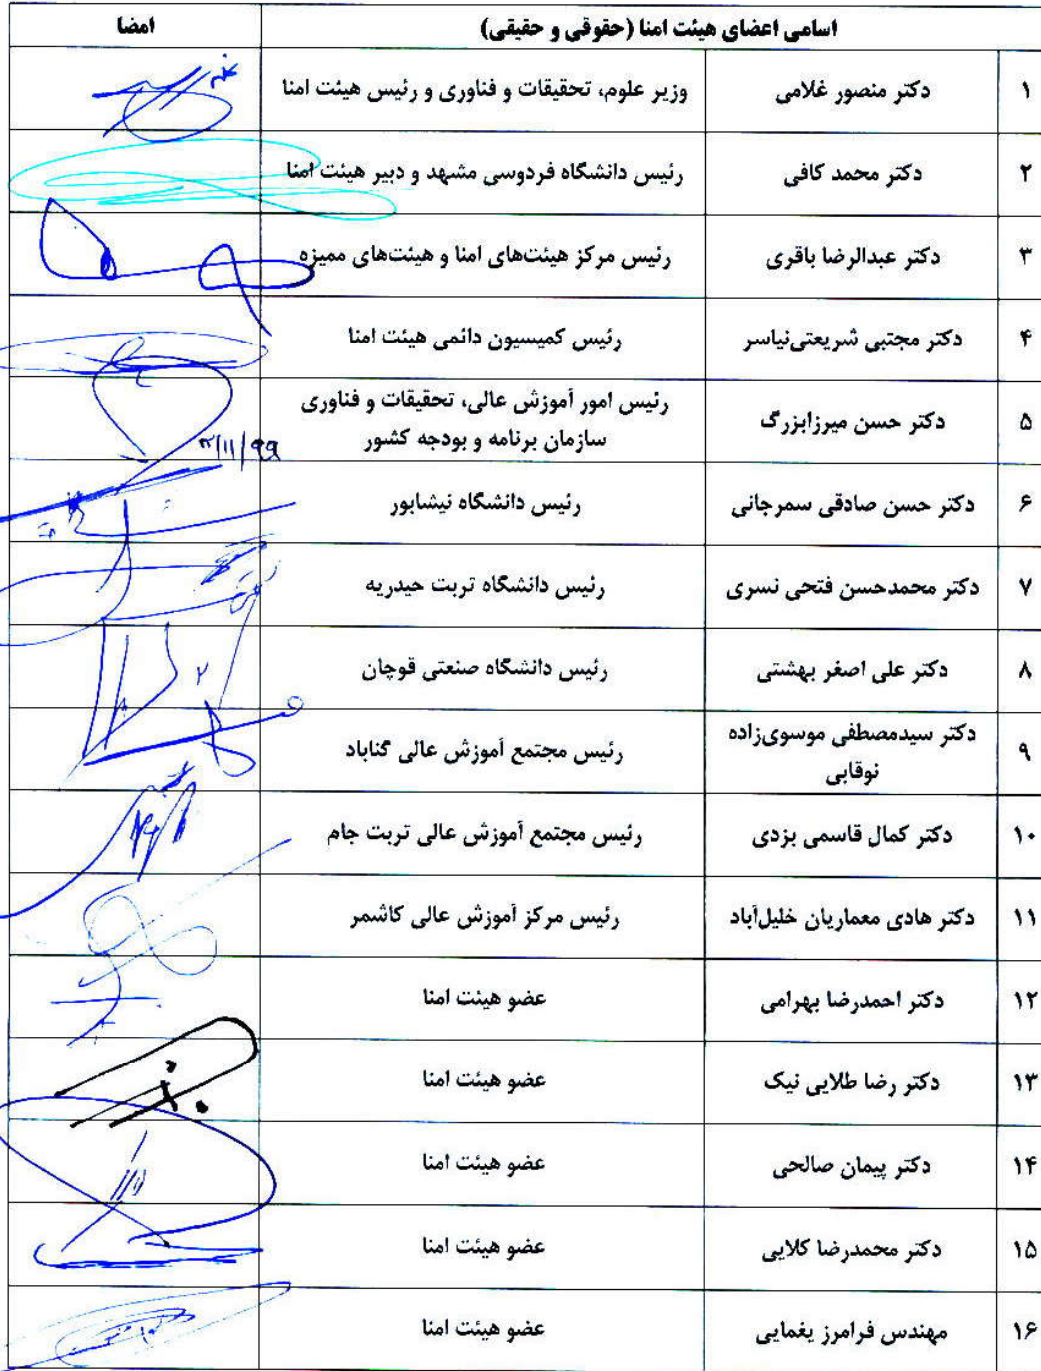 اسامی اعضای هیئت امنا (حقوقی و حقیقی) امضا
۱ دکتر منصور غلامی وزیر علوم، تحقیقات و فناوری و رئیس هیئت امنا
۲ دکتر محمد کافی رئیس دانشگاه فردوسی مشهد و دبیر هیئت امنا
۳ دکتر عبدالرضا باقری رئیس مرکز هیئت‌های امنا و هیئت‌های ممیزه
۴ دکتر مجتبی شریعتی‌نیاسر رئیس کمیسیون دائمی هیئت امنا
۵ دکتر حسن میرزابزرگ رئیس امور آموزش عالی، تحقیقات و فناوری
سازمان برنامه و بودجه کشور
۶ دکتر حسن صادقی سمرجانی رئیس دانشگاه نیشابور
۷ دکتر محمدحسن فتحی نسری رئیس دانشگاه تربت حیدریه
۸ دکتر علی اصغر بهشتی رئیس دانشگاه صنعتی قوچان
۹ دکتر سیدمصطفی موسوی‌زاده
نوقابی رئیس مجتمع آموزش عالی گناباد
۱۰ دکتر کمال قاسمی بزدی رئیس مجتمع آموزش عالی تربت جام
۱۱ دکتر هادی معماریان خلیل‌آباد رئیس مرکز آموزش عالی کاشمر
۱۲ دکتر احمدرضا بهرامی عضو هیئت امنا
۱۳ دکتر رضا طلایی نیک عضو هیئت امنا
۱۴ دکتر پیمان صالحی عضو هیئت امنا
۱۵ دکتر محمدرضا کلایی عضو هیئت امنا
۱۶ مهندس فرامرز یغمایی عضو هیئت امنا